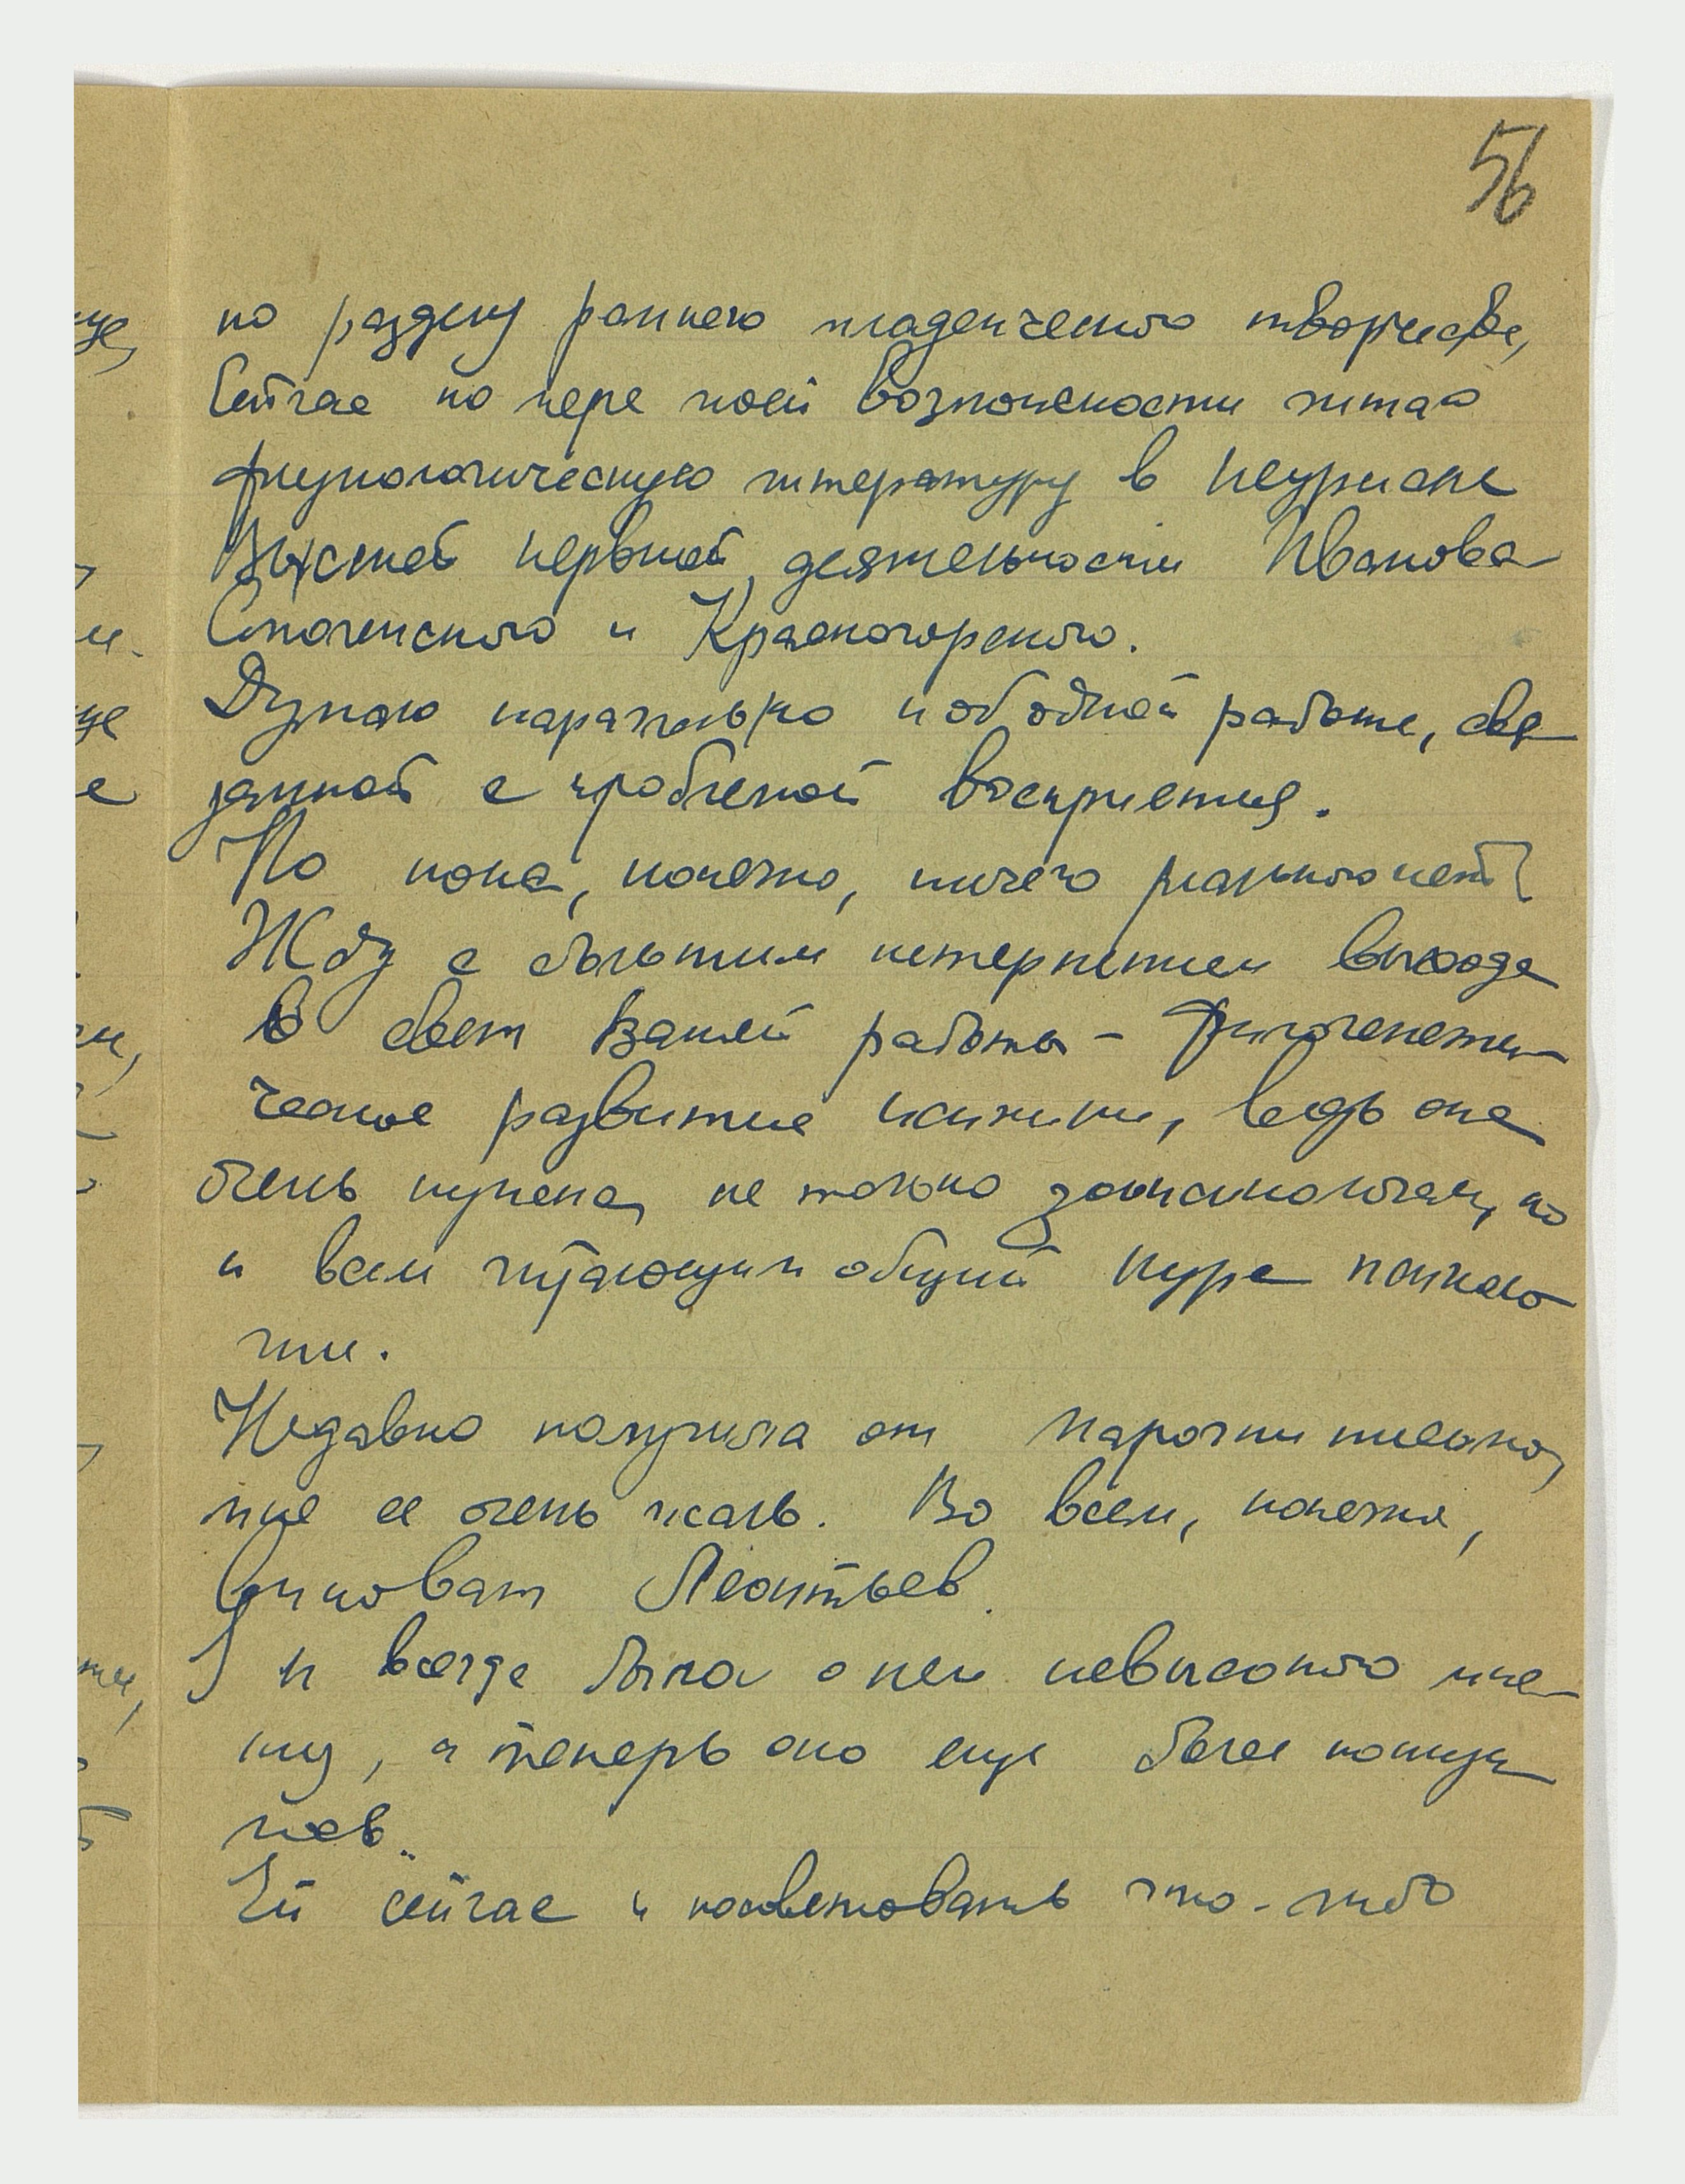 56
по разделу раннего младенческого творчества,
Сейчас по мере моей возможности читаю
физиологическую литературу в журнале
Высшей нервной деятельности Иванова
Смоленского и Красногорского.
Думаю параллельно и об одной работе, свя
занной с проблемой восприятия.
Но пока, конечно, ничего реального нет
Жду с большим нетерпением выхода
в свет Вашей работы - Филогенети-
ческое развитие психики, ведь она
очень нужена, не только зоопсихологам, но
и всем читающим общий курс психоло
гии.
Недавно получила от письмо,
мне ее очень жаль. Во всем, конечно,
виноват Леонтьев.
Я и всегда была о нем невысокого мне-
нию, а теперь оно еще более
Ей сейчас и посоветовать что-либо